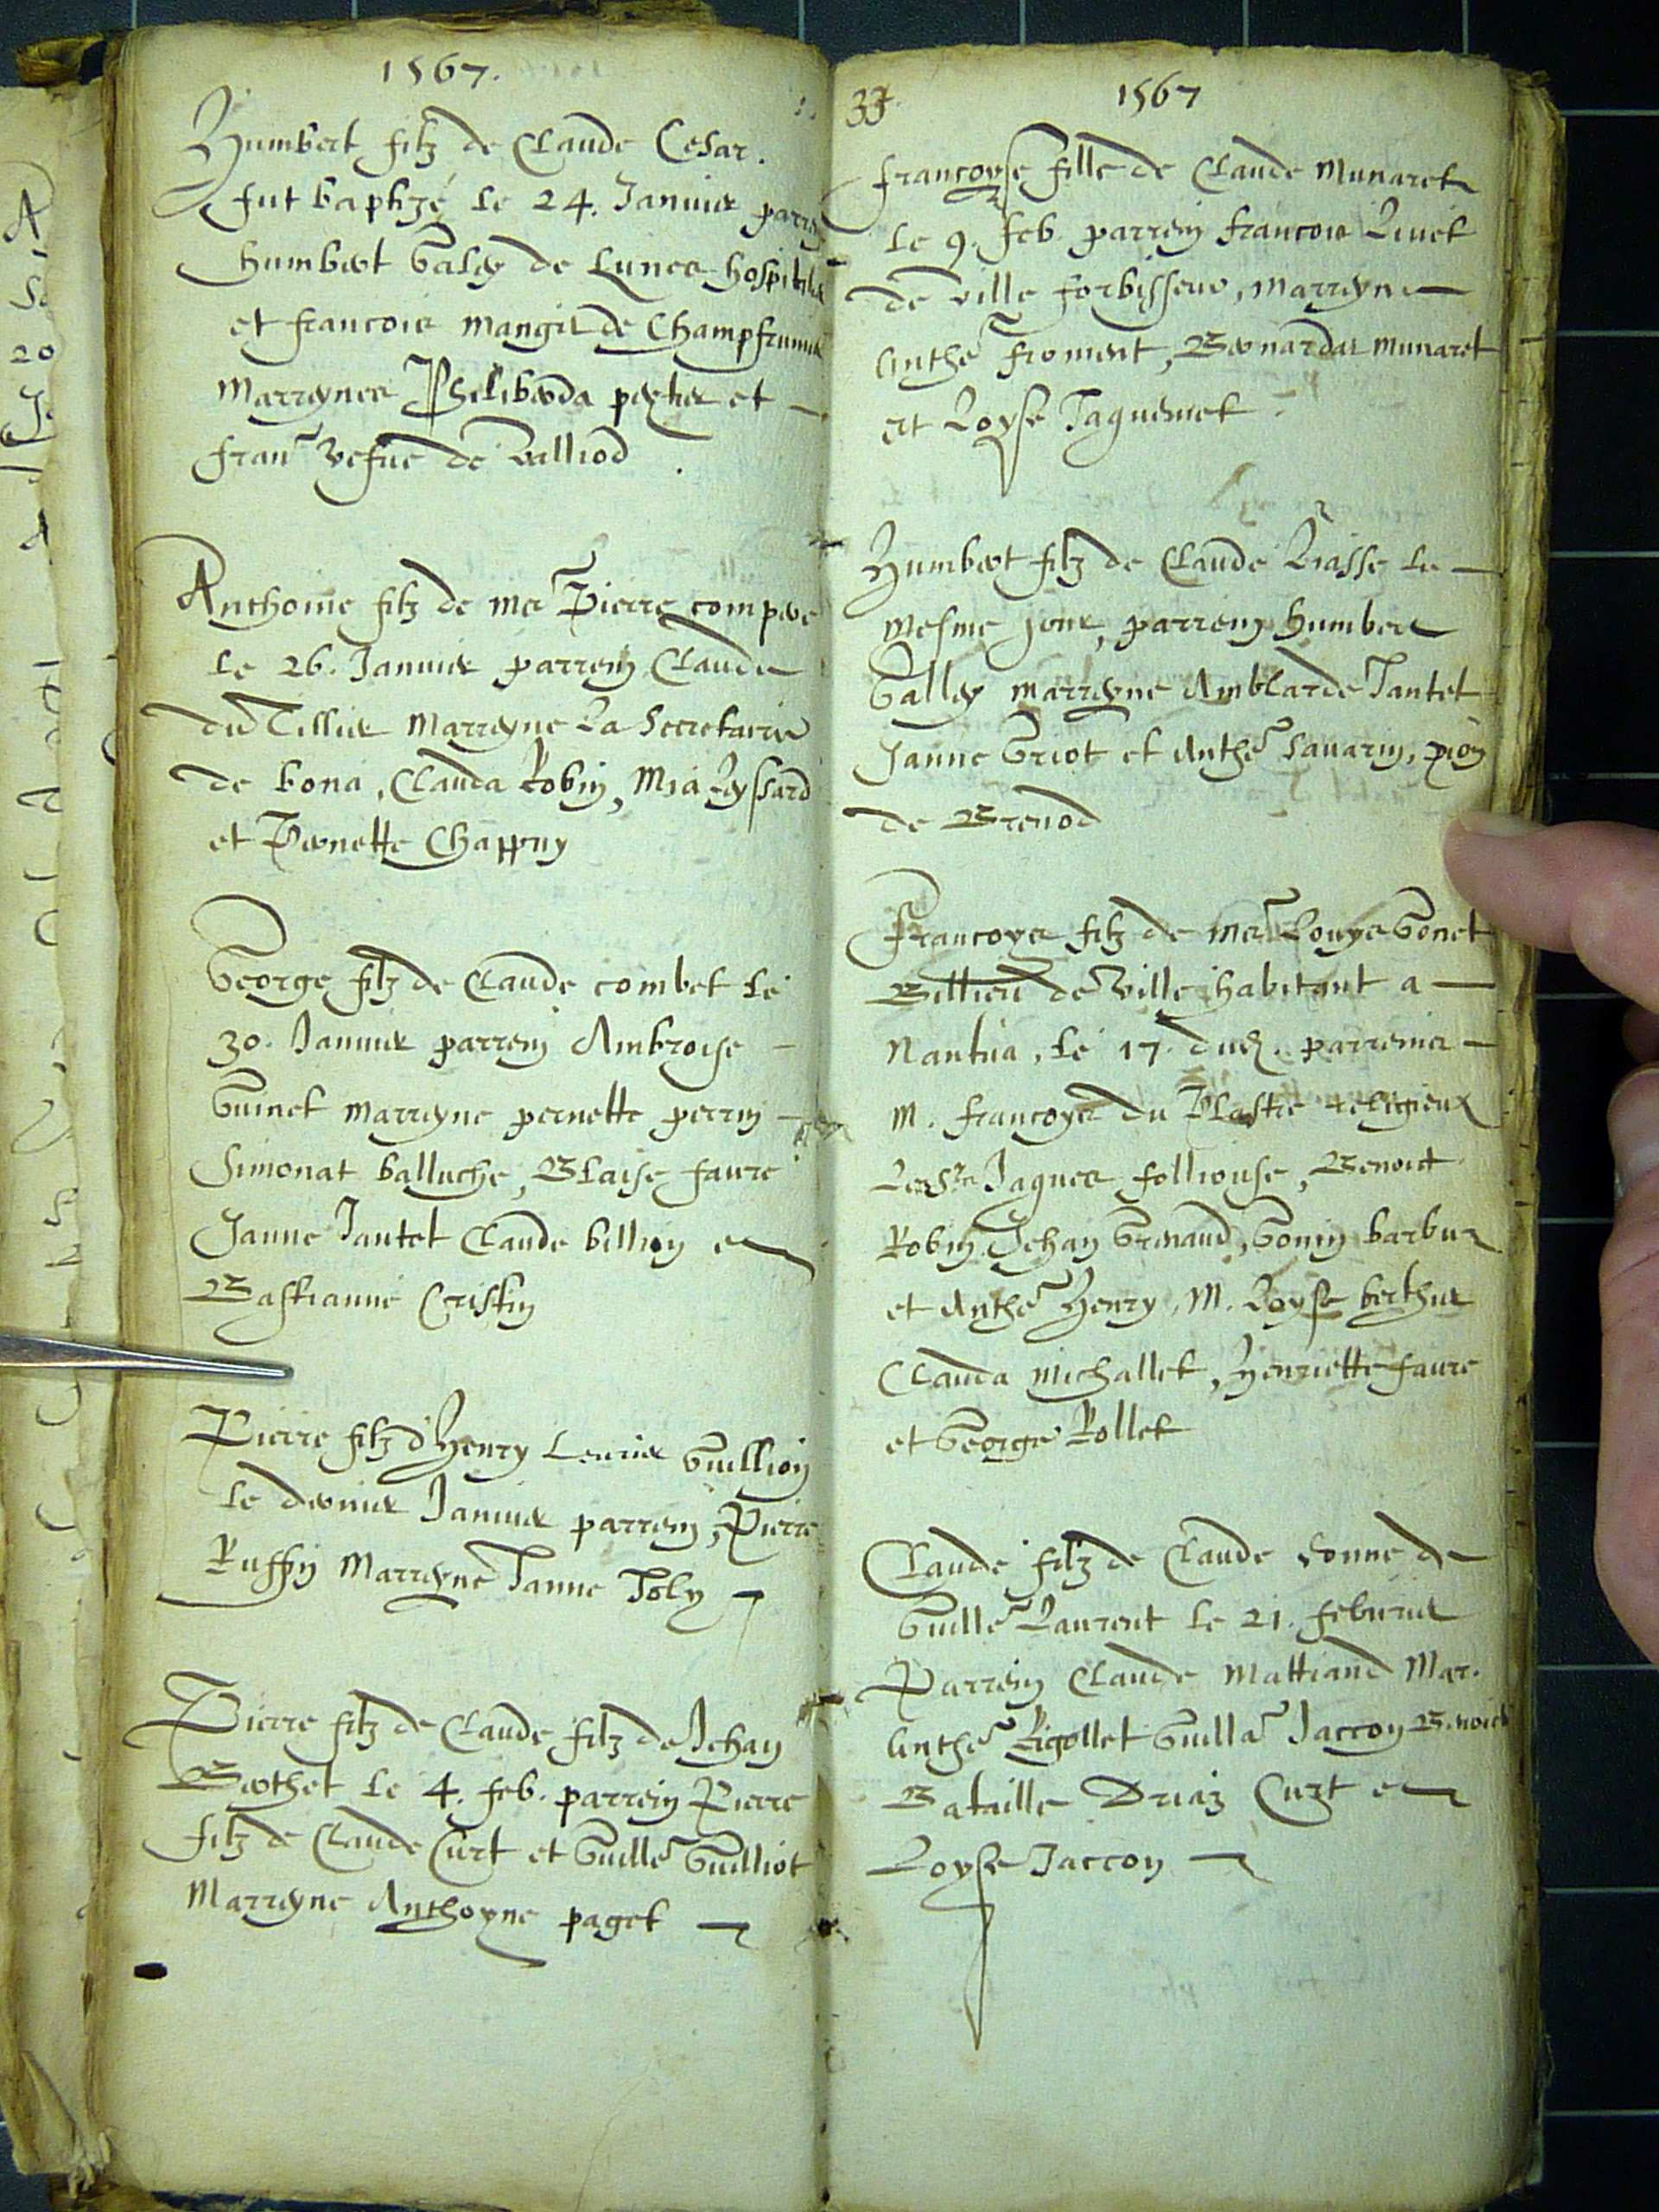 1567.
Humbert filz de Claude Cesar.
fut baptizé le 24. Januier parre
humbert Galey de Lunes hospitelier
et francois mangit de Champfrumie
Marreynes Philiberda et
fran vefue de Valliod.
Anthoine filz de Me Pierre compere
le 26. Januier parrein Claude
du Tillier Marreyne La Secretaire
de bona, Clauda Robin, Mia Reyssard
et Pernette Chappuy
George filz de Claude combet le
30. Januier parrein Ambroise
Guinet marreyne pernette perrin
Simonat balluche, Blaise faure
Janne Jantet Claude billion et
Bastianne Cristin
Pierre filz d'Henry Guillion
le dernier Januier parrein, Pierre
Ruffin Marreyne Janne Joly
Pierre filz de Claude filz de Jehan
Berthet le 4. feb. parrein Pierre
filz de Claude Curt et Guille Guilliot
Marreyne Anthoyne paget
33
1567
francoyse fille de Claude Munaret
le 9. feb. parrein francois Livet
de ville forbisseur, marreyne
Anthe froment, Bernardat munaret
et Loyse Jaguemet
Humbert filz de Claude Liasse le
mesme jour, parrein humbert
Galley marreyne Amblarde Jantet
Janne Griot et Anthe Savarin,
de Brenod
Francoys filz de Me Louys Gonet
Billieu de Ville habitant a
Nantua, le 17. dud. parreins
M. francoys du Plastre religieux
Les Srs Jaques folliouse, Benoict
Robin, Jehan Grinaud, Gonin barbur
et Anthe Henry, M. Loyse berthier
Clauda michallet, Henriette faure
et George Rollet
Claude filz de Claude donne de
Guille Laurent le 21. feburier
Parrein Claude Mattiand Mar.
Anthe Rigollet Guilla Jaccon Benoict
Bataille Driaz Curt et
Loyse Jaccon